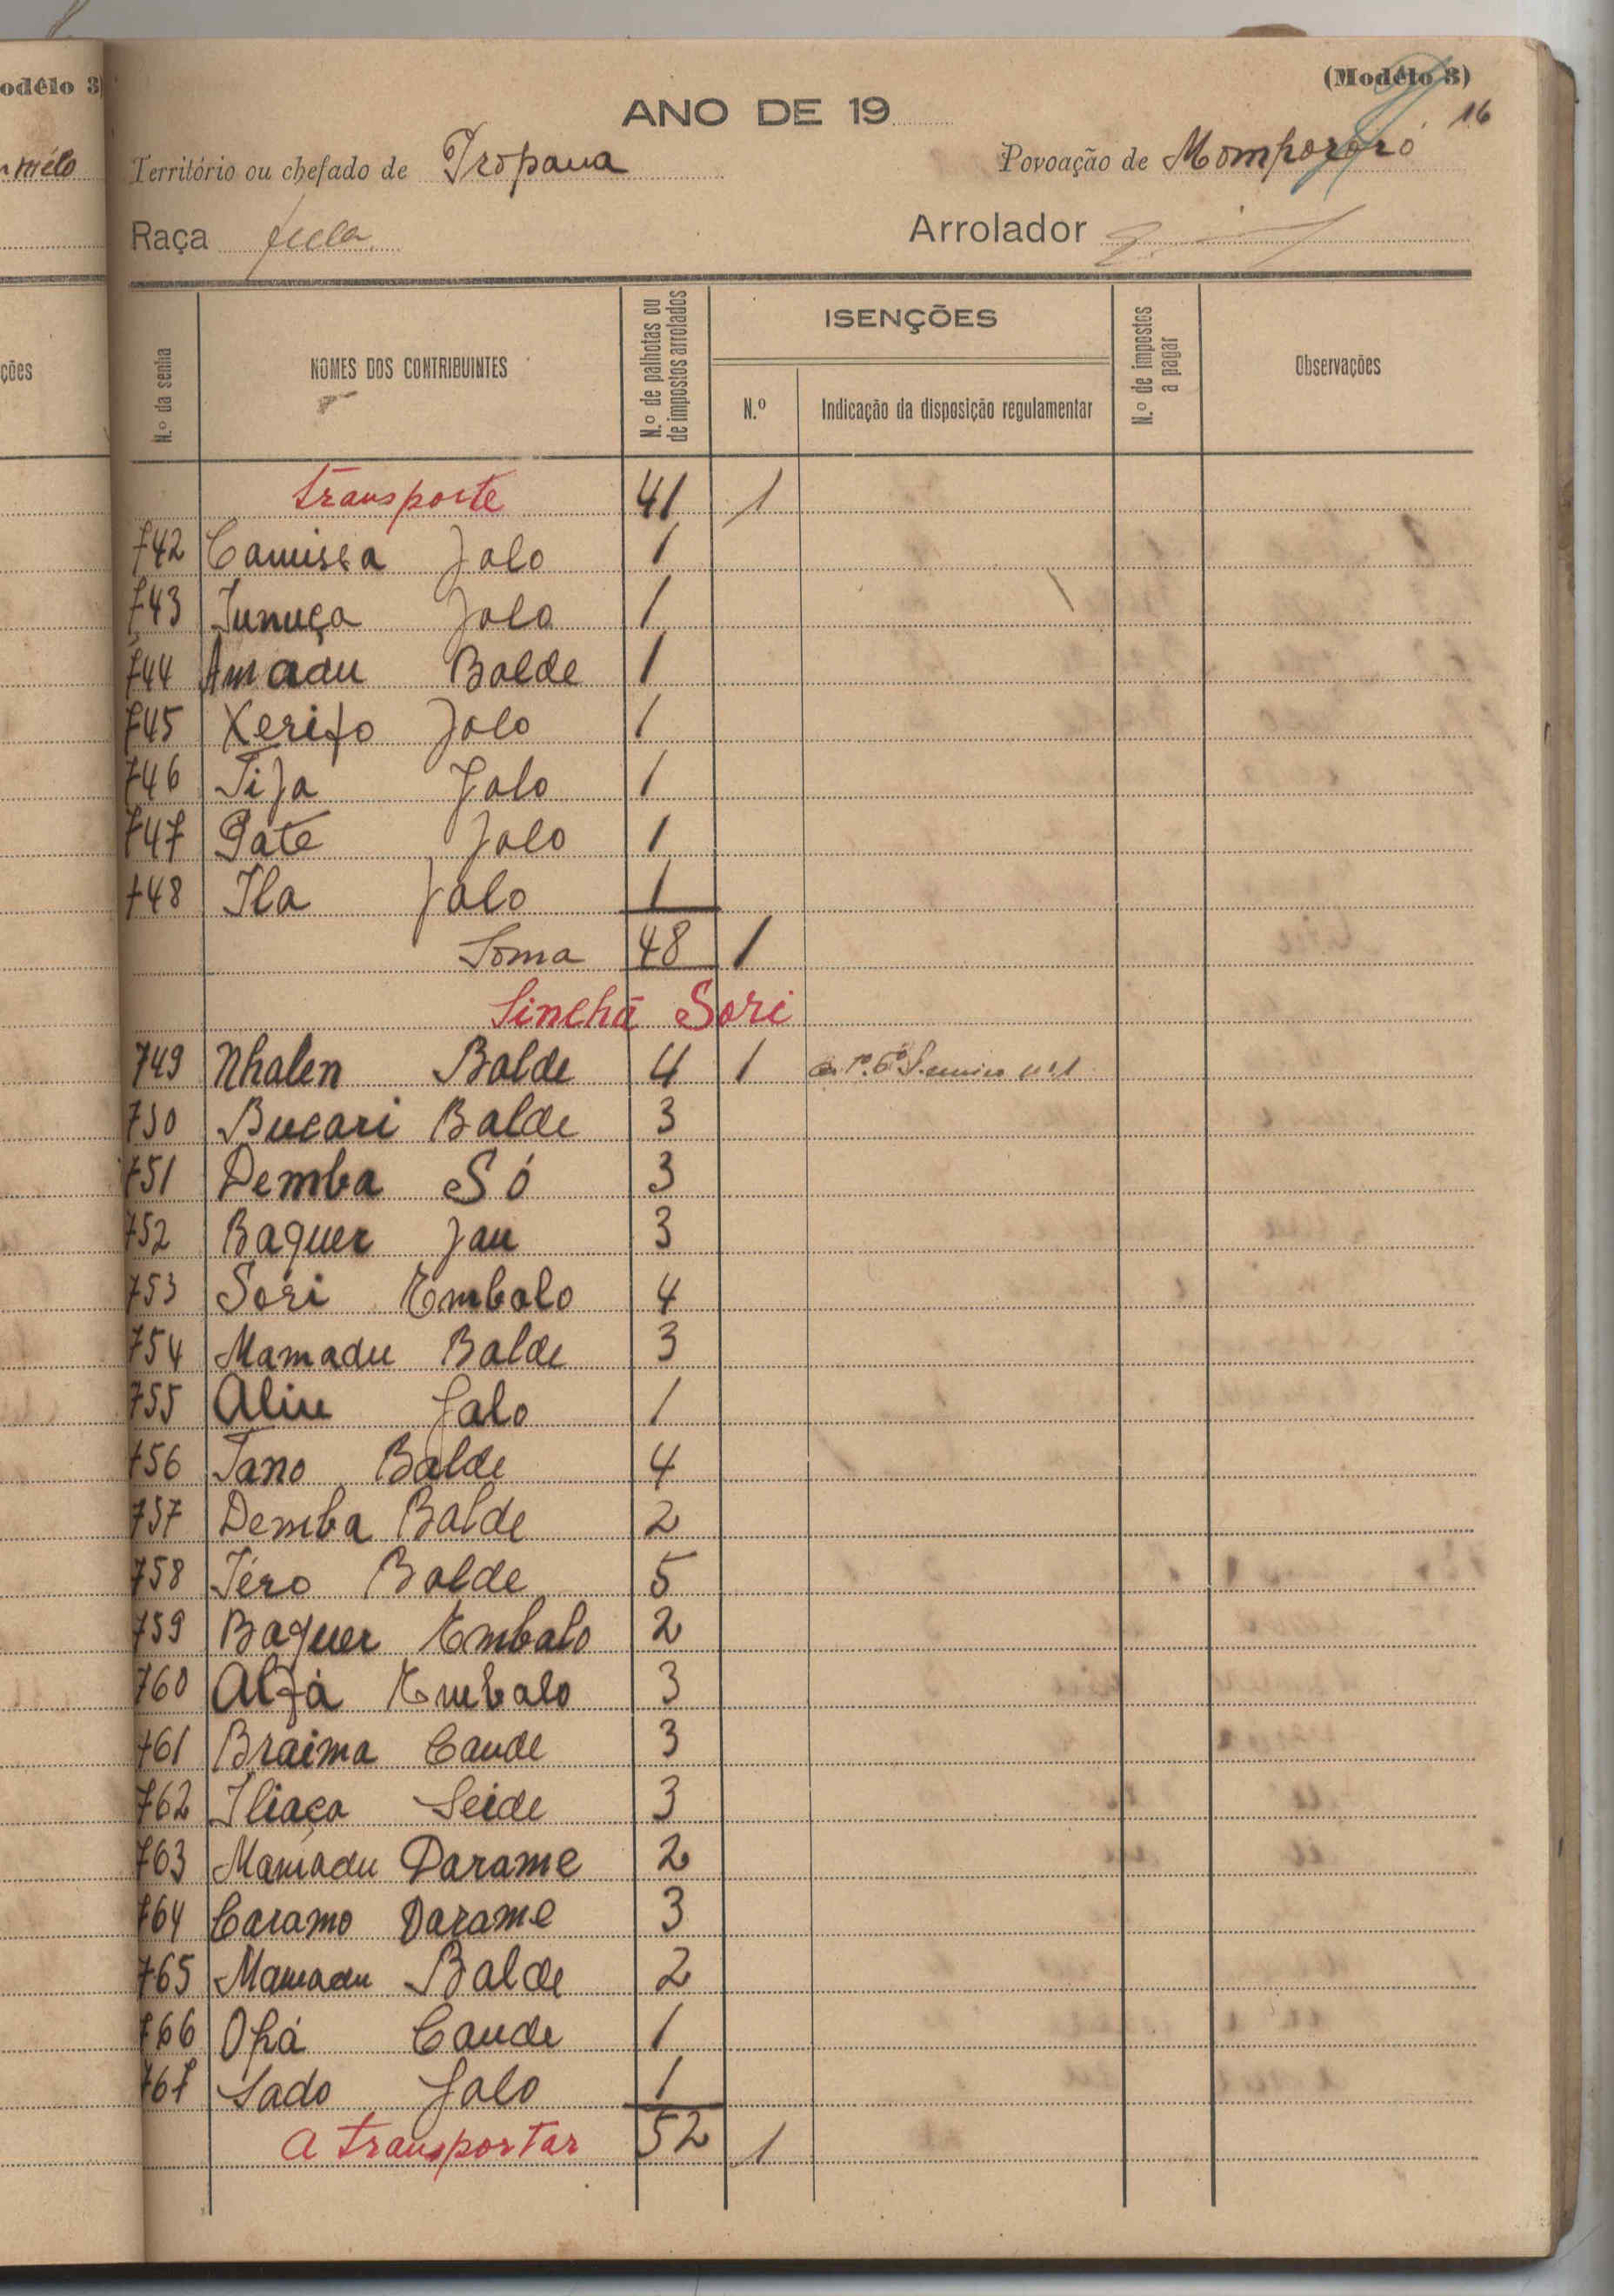 odêlo 3)
mélo
ções
(Modêlo 3)
16
ANO DE 19
Território ou chefado de Propana
Povoação de Momhororó
Raça fula
Arrolador
N.º da senha
NOMES DOS CONTRIBUINTES
N.º de palhotas ou de impostos arrolados
ISENÇÕES
N.º
Indicação da disposição regulamentar
N.º de impostos a pagar
Observações
Transporte 41 1
742 Camisa Jalo 1
743 Junuça Jalo 1
744 Amadu Balde 1
745 Xerifo Jalo 1
746 Tija Jalo 1
747 Pate Jalo 1
748 Ila Jalo 1
Soma 48 1
Sinchã Sori
749 Nhalen Balde 4 1 nº1
750 Bucari Balde 3
751 Demba Só 3
752 Baquer Jau 3
753 Sori Embalo 4
754 Mamadu Balde 3
755 Aliu Jalo 1
756 Tano Balde 4
757 Demba Balde 2
758 Téro Balde 5
759 Baquer Embalo 2
760 Alfá Embalo 3
761 Braima Cande 3
762 Iliaça Seide 3
763 Mamadu Darame 2
764 Caramo Darame 3
765 Mamadu Balde 2
766 Ohá Cande 1
767 Sado Jalo 1
A transportar 52 1